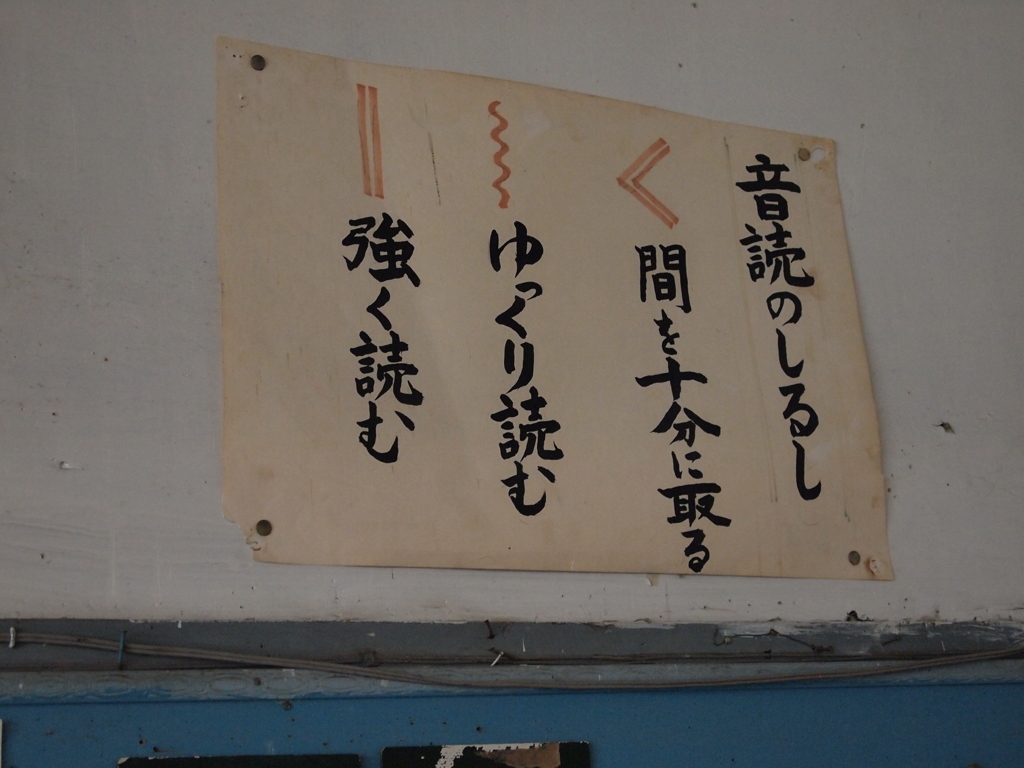 音読のしるし
間を十分に最る
ゆっくり読む
強く読む